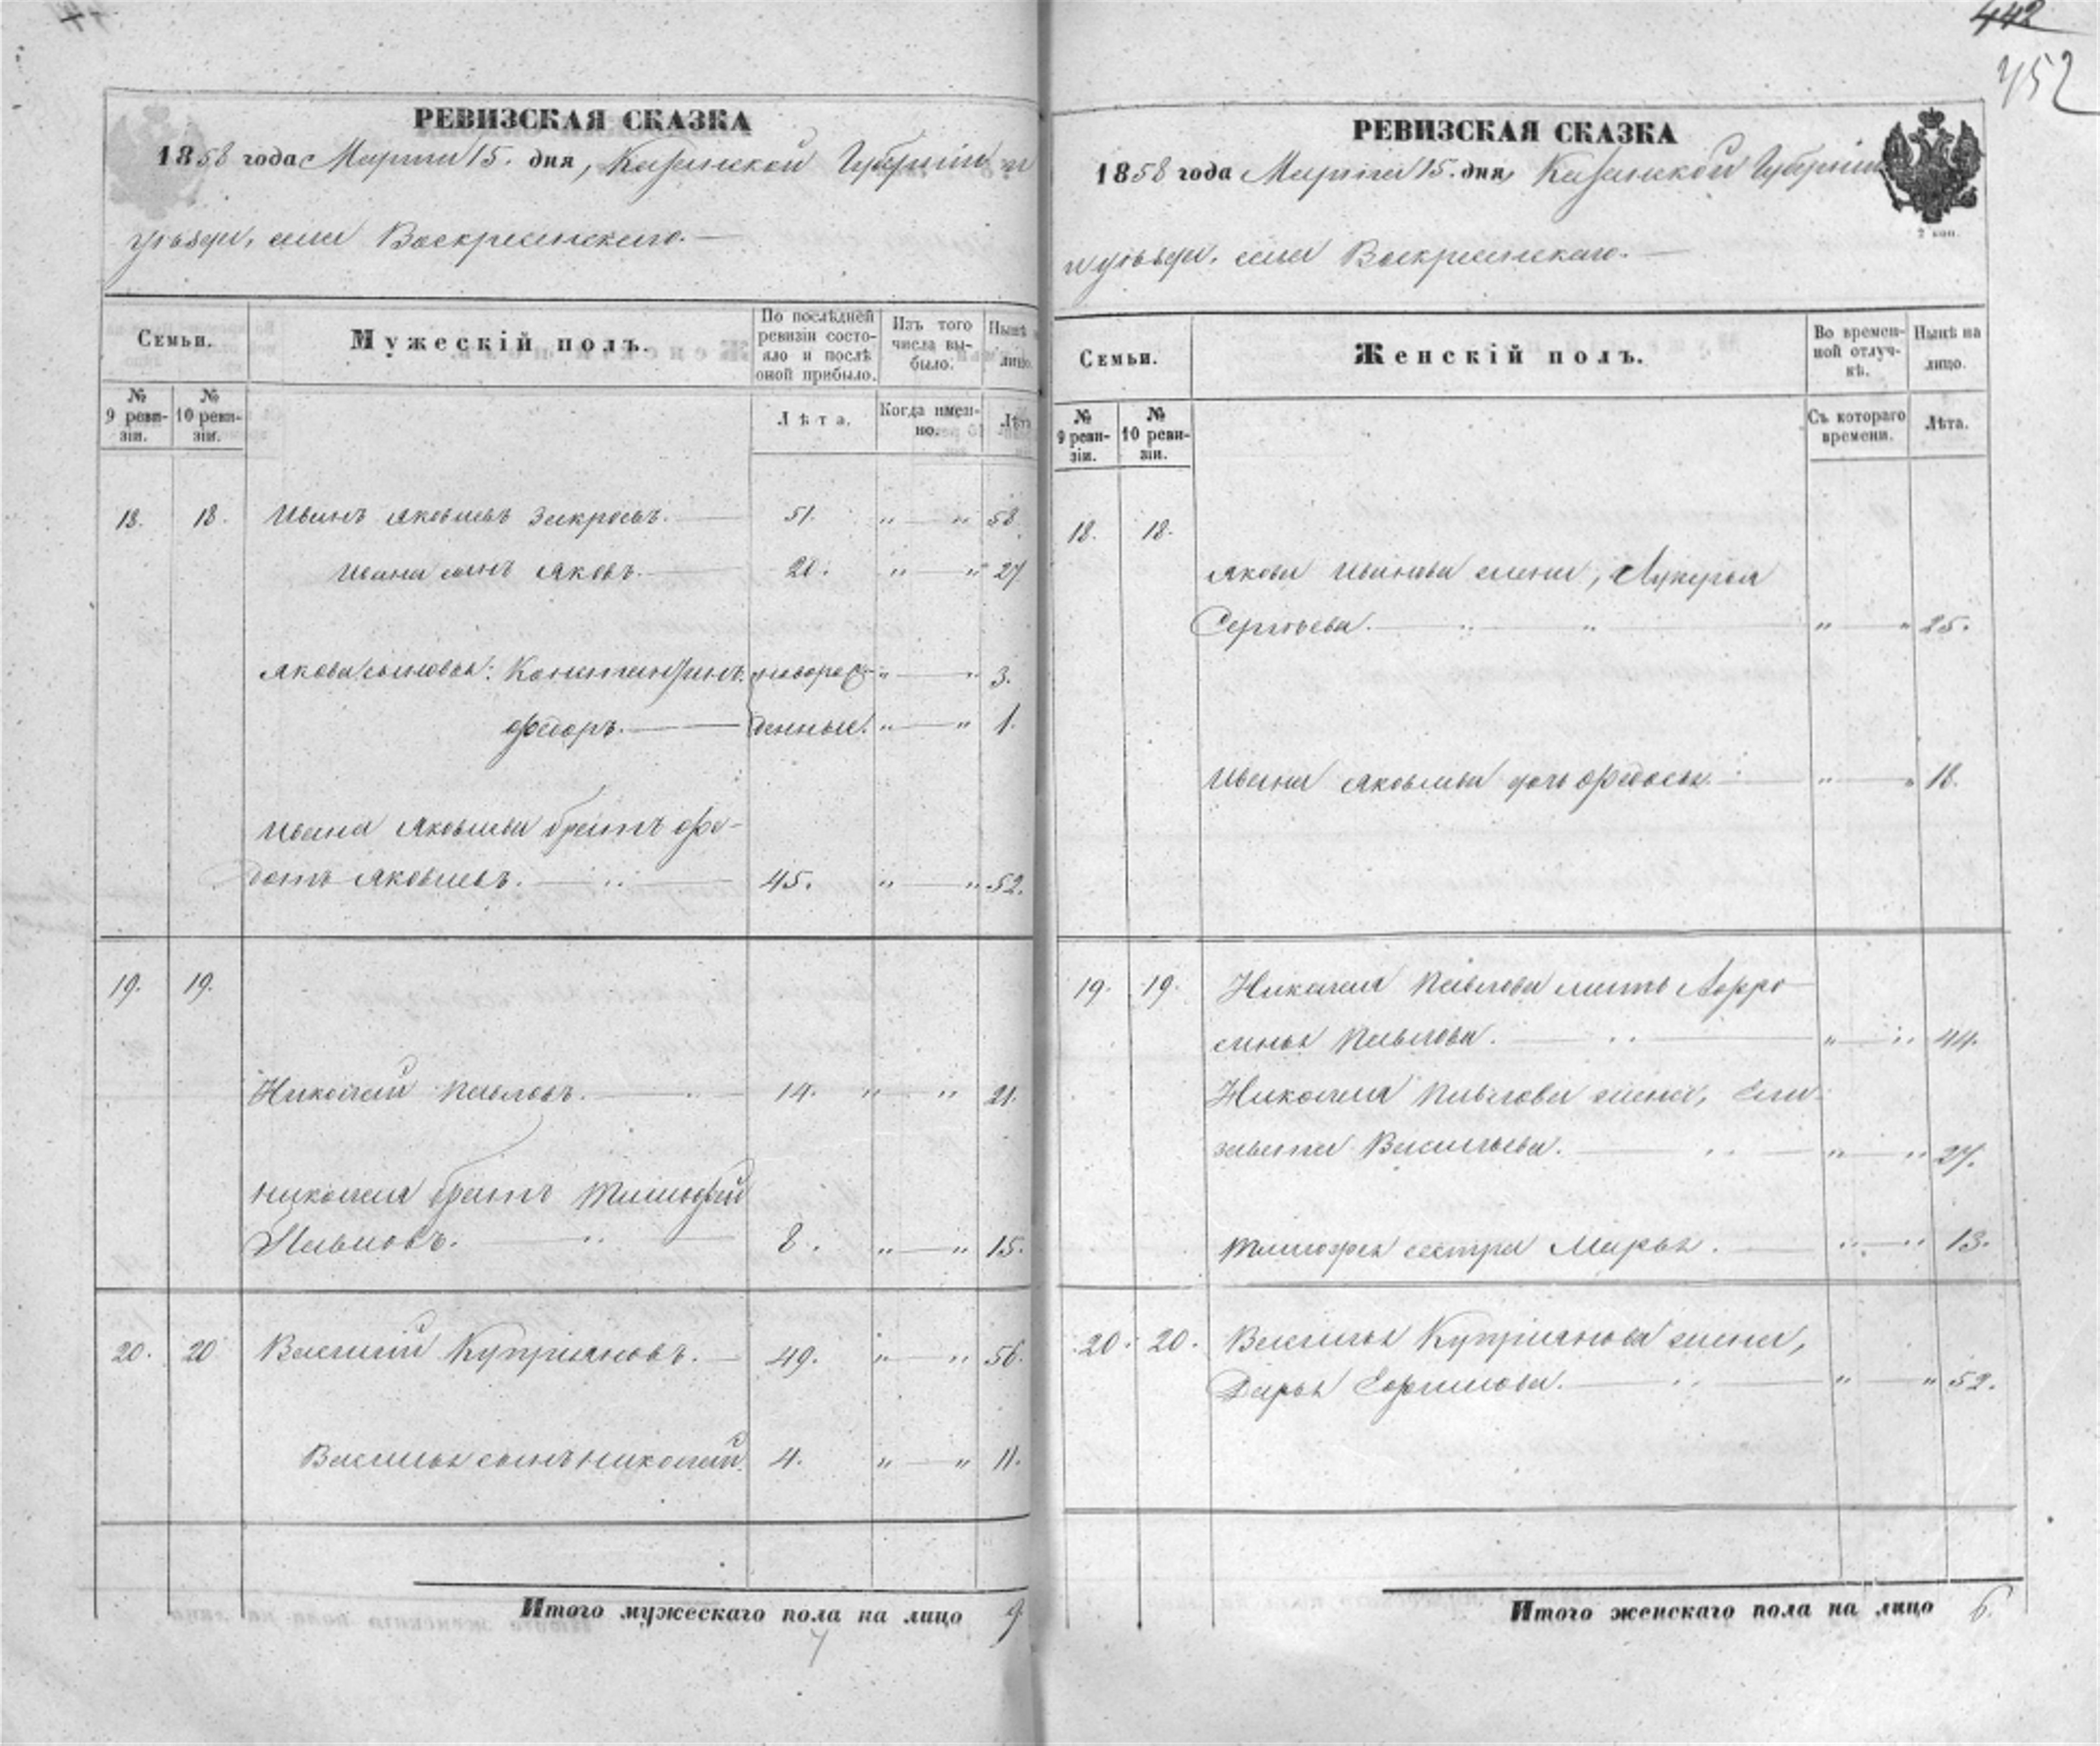 442
452
РЕВИЗСКАЯ СКАЗКА
1858 года Марта 15. дня, Казанской Губерніи и
уѣзда, села Воскресенскаго.
Семьи.
Мужескій полъ.
По послѣдней ревизіи состояло и послѣ оной прибыло.
Изъ того числа выбыло.
Нынѣ лицо.
№ 9 ревизіи.
№ 10 ревизіи.
Лѣта.
Когда именно.
Лѣта
18. 18. Иванъ Яковлевъ Захровъ. 51. " " 58
Ивана сынъ Яковъ. 20. " " 27
Якова сыновья: Констентинъ новорож- " " 3.
Федоръ. денные. " " 1.
Ивана Яковлева братъ Фе-
дотъ Яковлевъ. 45. " " 52.
19. 19.
Николай Павловъ. 14. " " 21.
Николая братъ Тимофей
Павловъ. 8. " " 15.
20. 20 Василій Купріяновъ. 49. " " 56.
Василья сынъ Николай. 4. " " 11.
Итого мужескаго пола на лицо 9.
7
РЕВИЗСКАЯ СКАЗКА
1858 года Марта 15. дня, Казанской Губерніи
и уѣзда, села Воскресенскаго.
2 коп.
Семьи.
Женскій полъ.
Во временной отлучкѣ.
Нынѣ на лицо.
№ 9 ревизіи.
№ 10 ревизіи.
Съ котораго времени.
Лѣта.
18. 18.
Якова Иванова жена, Лукерья
Сергѣева. " " 25.
Ивана Яковлева дочь Федосья. " " 18.
19. 19. Николая Павлова мать Афро
синья Павлова. " " 44.
Николая Павлова жена, Ели-
завета Васильева. " " 27.
Тимофея сестра Марья. " " 13.
20. 20. Василья Купріянова жена,
Дарья Ефимова. " " 52.
Итого женскаго пола на лицо 6.